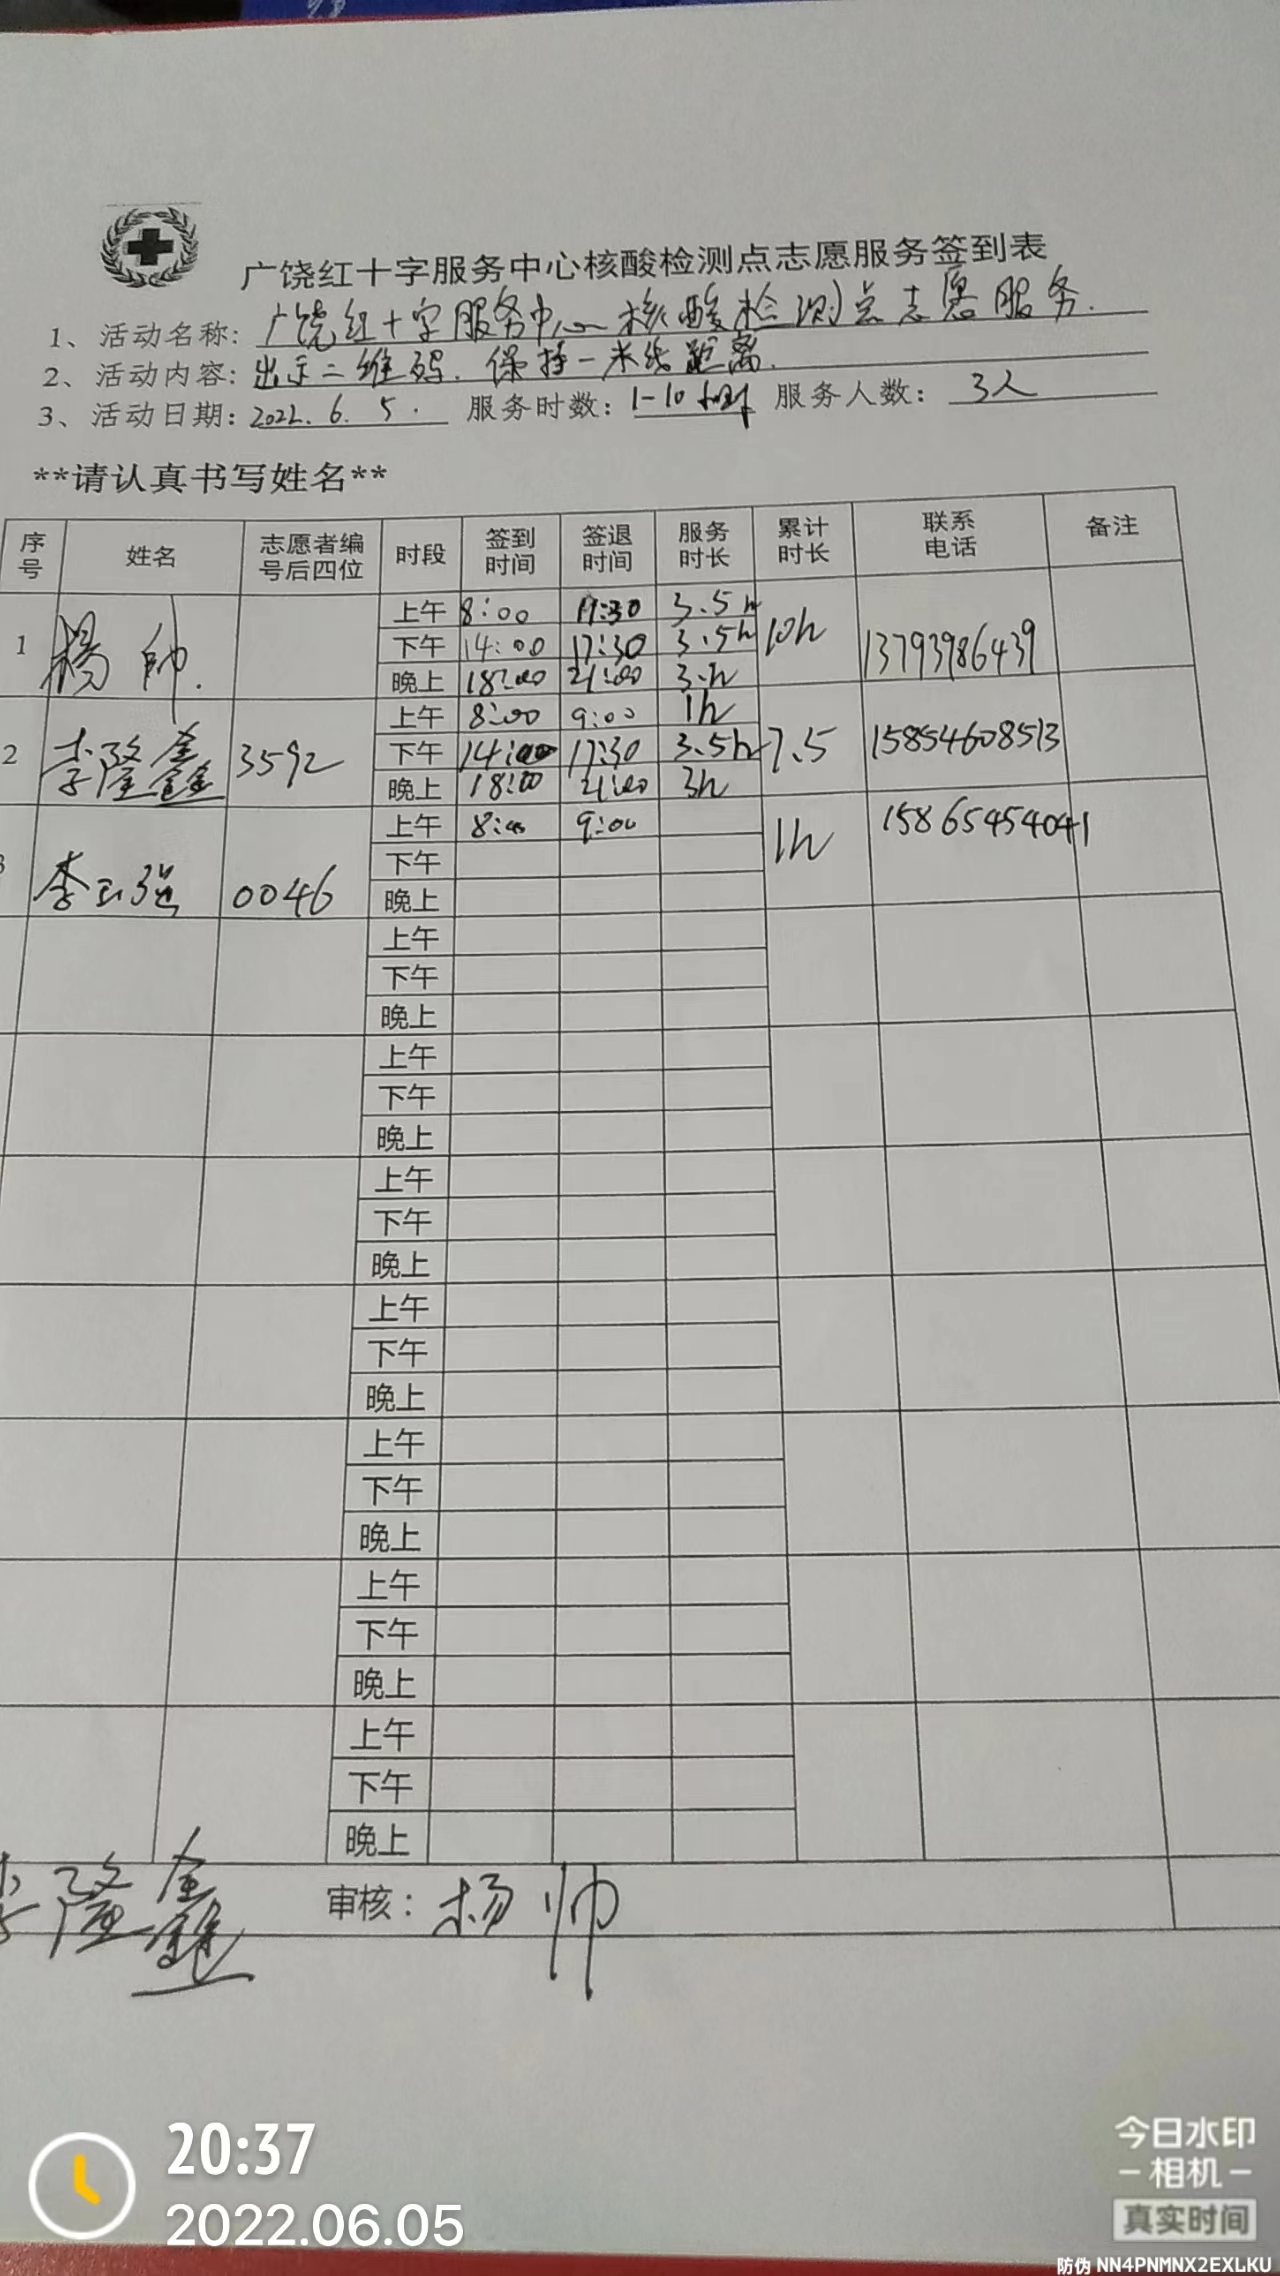 广饶红十字服务中心核酸检测点志愿服务签到表
1、活动名称：广饶红十字服务中心核酸检测点志愿服务.
2、活动内容：出示二维码.保持一米线距离.
3、活动日期：2022.6.5. 服务时数：1-10小时 服务人数：3人
**请认真书写姓名**
序号 姓名 志愿者编号后四位 时段 签到时间 签退时间 服务时长 累计时长 联系电话 备注
1 杨帅. 上午 8:00 11:30 3.5h 10h 13793986439
下午 14:00 17:30 3.5h
晚上 18:00 21:00 3.h
2 李隆鑫 3592 上午 8:00 9:00 1h 7.5 15854608513
下午 14:00 17:30 3.5h
晚上 18:00 21:00 3h
3 李玉强 0046 上午 8:00 9:00 1h 15865454041
下午
晚上
上午
下午
晚上
上午
下午
晚上
上午
下午
晚上
上午
下午
晚上
上午
下午
晚上
上午
下午
晚上
上午
下午
晚上
李隆鑫 审核：杨帅
20:37
2022.06.05
今日水印
-相机-
真实时间
防伪 NN4PNMNX2EXLKU